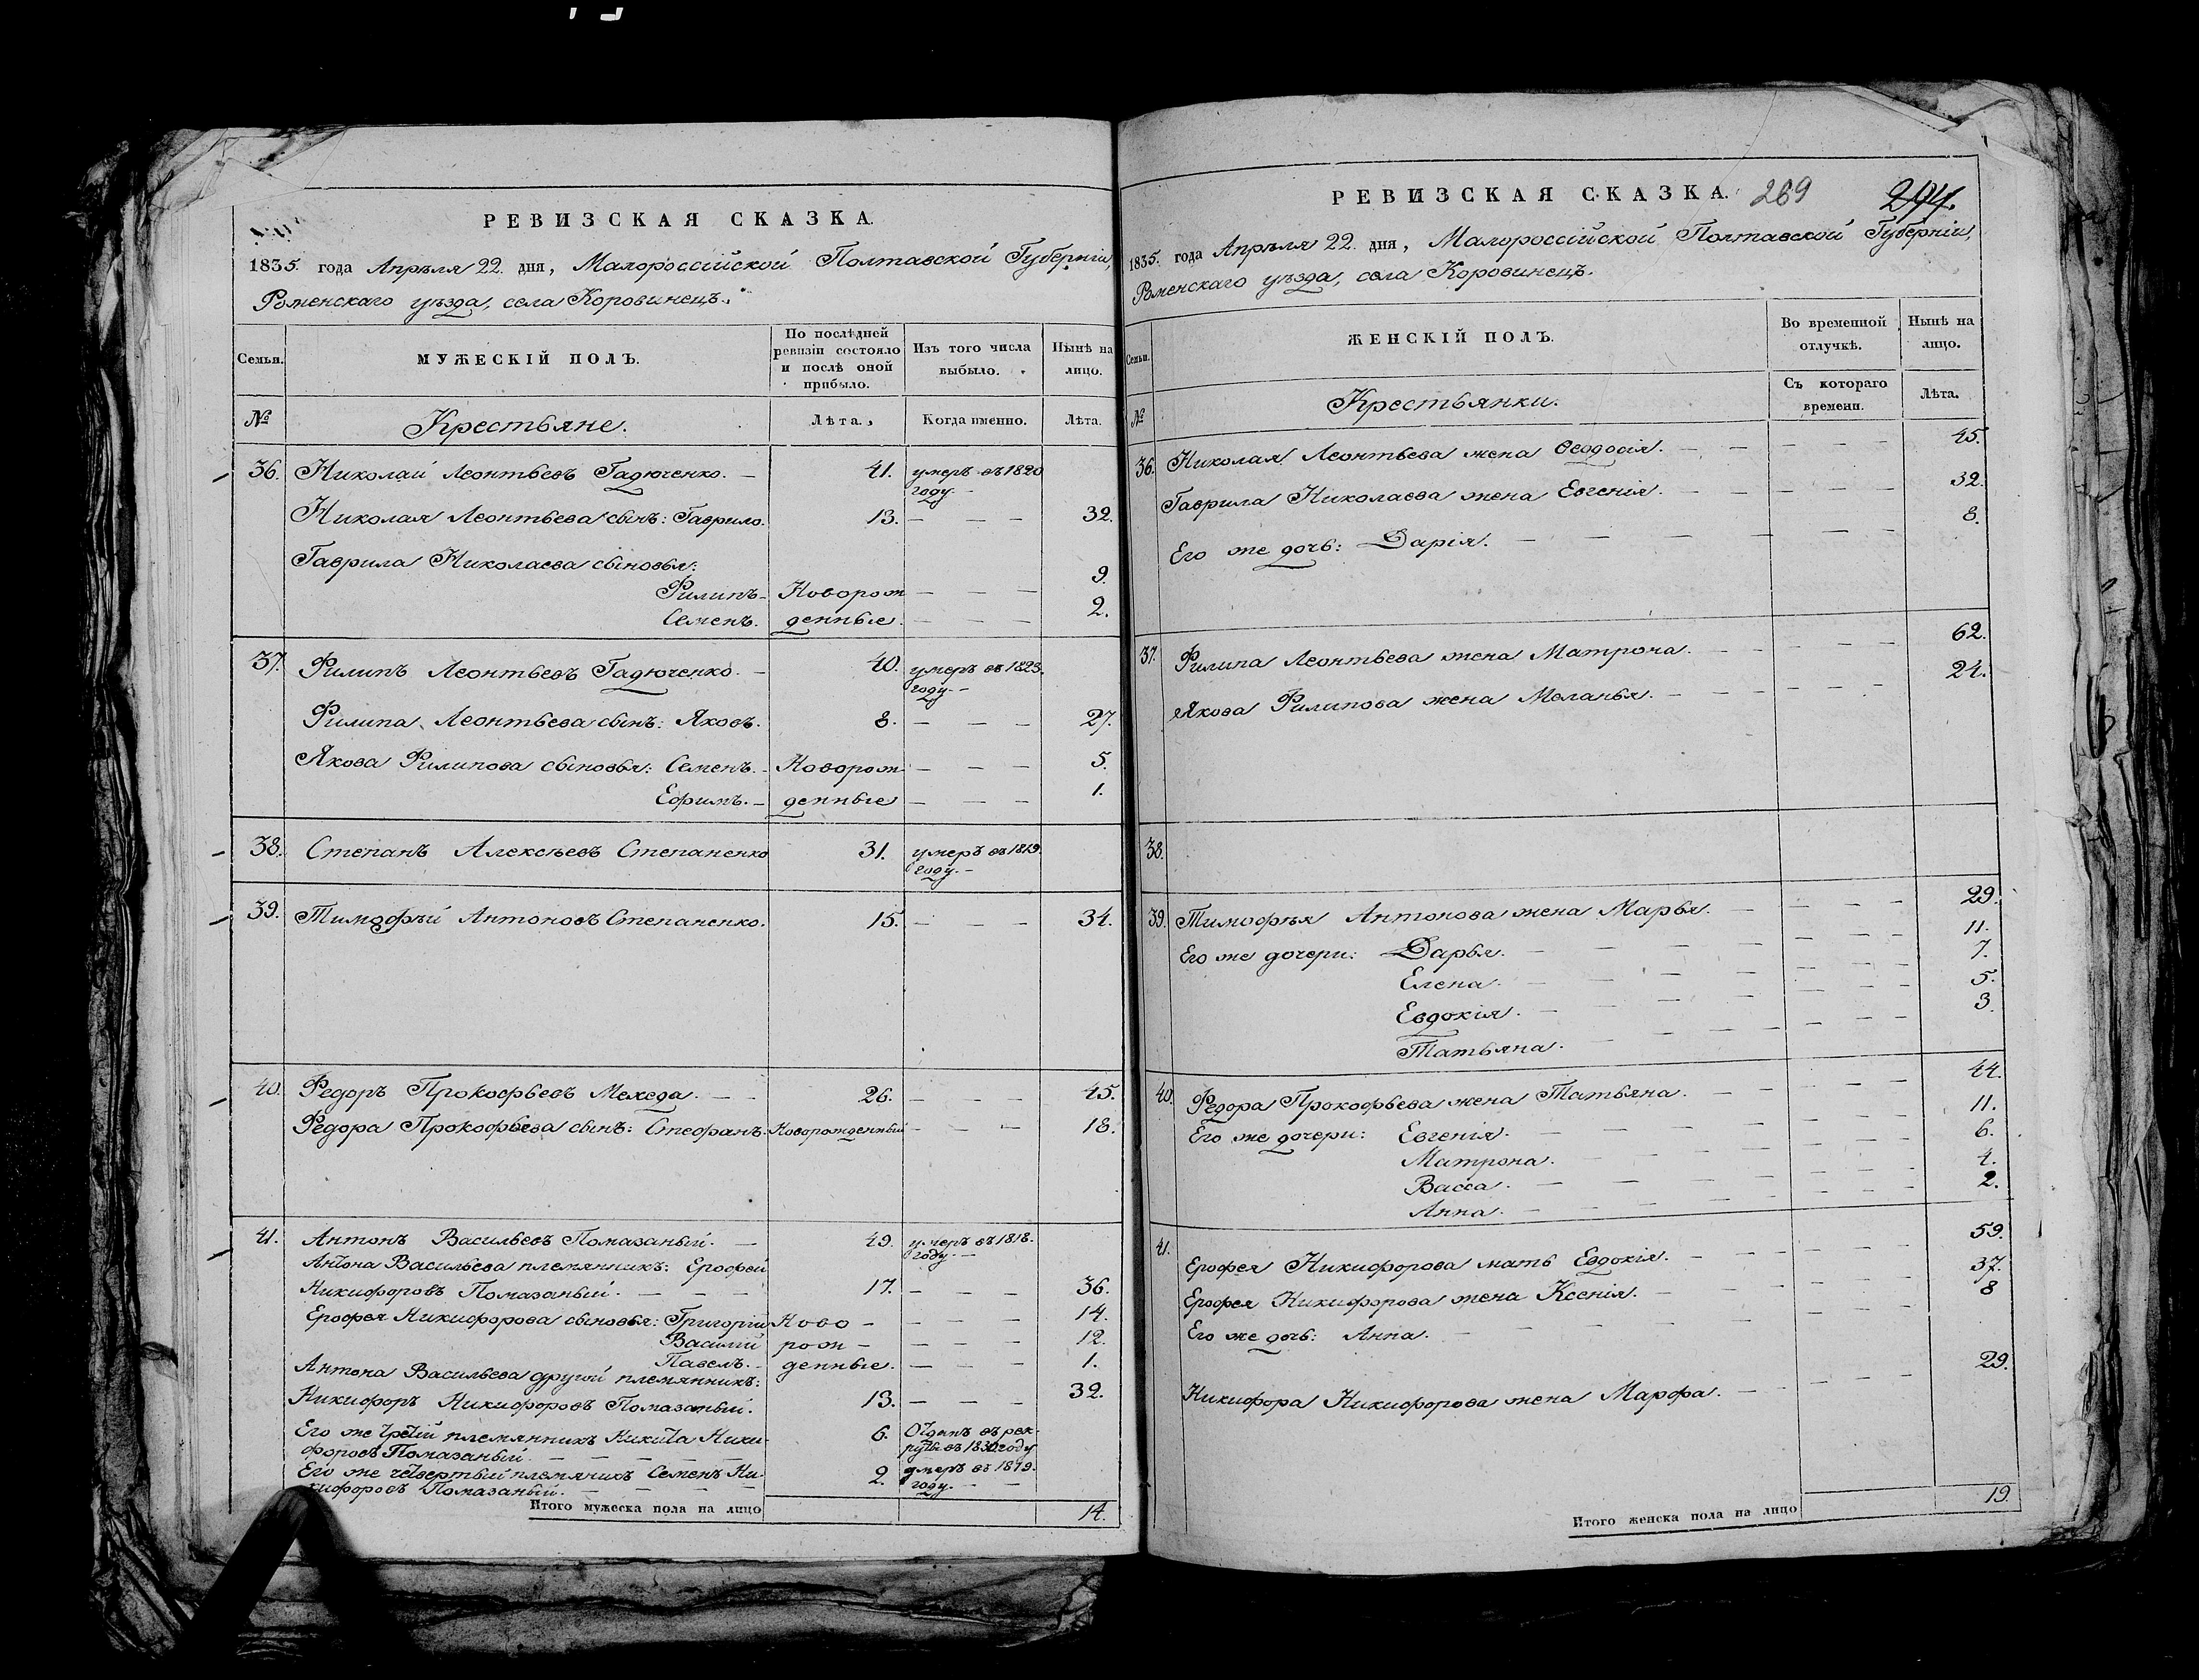 РЕВИЗСКАЯ СКАЗКА.
1835. года Апрѣля 22. дня, Малороссійской Полтавской Губерніи,
Роменскаго уѣзда, села Коровинецъ.
Семьи.
МУЖЕСКІЙ ПОЛЪ.
По послѣдней
ревизіи состояло
и послѣ оной
прибыло.
Изъ того числа
выбыло.
Нынѣ на
лицо.
№
Крестьяне.
Лѣта.
Когда именно.
Лѣта.
36. Николай Леонтьевъ Гадюченко. — 41. умеръ въ 1820
году. —
Николая Леонтьева сынъ: Гаврило. 13. — — — 32.
Гаврила Николаева сыновья:
Филипъ — Новорож — — — 9.
Семенъ. денные. — — — 2.
37. Филипъ Леонтьевъ Гадюченко. — 40. умеръ въ 1823.
году. —
Филипа Леонтьева сынъ: Яковъ. 8. — — — 27.
Якова Филипова сыновья: Семенъ. — Новорож — — — 5.
Ефимъ. — денные — — — 1.
38. Степанъ Алексѣевъ Степаненко 31. умеръ въ 1819.
году. —
39. Тимофѣй Антоновъ Степаненко. 15. — — — 34.
40. Федоръ Прокофьевъ Мехеда. — — 26. — — — 45.
Федора Прокофьева сынъ: Стефанъ. Новорожденный — — — 18.
41. Антонъ Васильевъ Помазаный. — 49. умеръ въ 1818.
году. —
Антона Васильева племянникъ: Ерофей
Никифоровъ Помазаный. — — — 17. — — — 36.
Ерофея Никифорова сыновья: Григорій Ново — — — — 14.
Василій рож — — — — 12.
Павелъ. — денные. — — — 1.
Антона Васильева другой племянникъ:
Никифоръ Никифоровъ Помазаный. 13. — — — 32.
Его же третій племянникъ Никита Ники- 6. Отданъ въ рек-
форовъ Помазаный. — — — — руты въ 1830. году
Его же четвертый племяникъ Семенъ Ни- 2. умеръ въ 1819.
кифоровъ Помазаный. — — — — году. — —
Итого мужеска пола на лицо 14.
РЕВИЗСКАЯ СКАЗКА. 269 294.
1835. года Апрѣля 22. дня, Малороссійской Полтавской Губерніи,
Роменскаго уѣзда, села Коровинецъ.
Семьи.
ЖЕНСКІЙ ПОЛЪ.
Во временной
отлучкѣ.
Нынѣ на
лицо.
№
Крестьянки.
Съ котораго
времени.
Лѣта.
36. Николая Леонтьева жена Ѳеодосія. — — — — — 45.
Гаврила Николаева жена Евгенія. — — — — — — 32.
Его же дочь: Дарія. — — — — — — — 8.
37. Филипа Леонтьева жена Матрона. — — — — — — 62.
Якова Филипова жена Меланья. — — — — — — 24.
38.
39. Тимофѣя Антонова жена Марья. — — — — 29.
Его же дочери: Дарья. — — — — — — — 11.
Елена. — — — — — — — 7.
Евдокія. — — — — — — — 5.
Татьяна. — — — — — — — 3.
40. Федора Прокофьева жена Татьяна. — — — — — 44.
Его же дочери: Евгенія. — — — — — — — 11.
Матрона. — — — — — — — 6.
Васса. — — — — — — — 4.
Анна. — — — — — — — 2.
41. Ерофея Никифорова мать Евдокія. — — — — — — 59.
Ерофея Никифорова жена Ксенія. — — — — — — 37.
Его же дочь: Анна. — — — — — — — 8
Никифора Никифорова жена Марфа. — — — — — 29.
Итого женска пола на лицо 19.